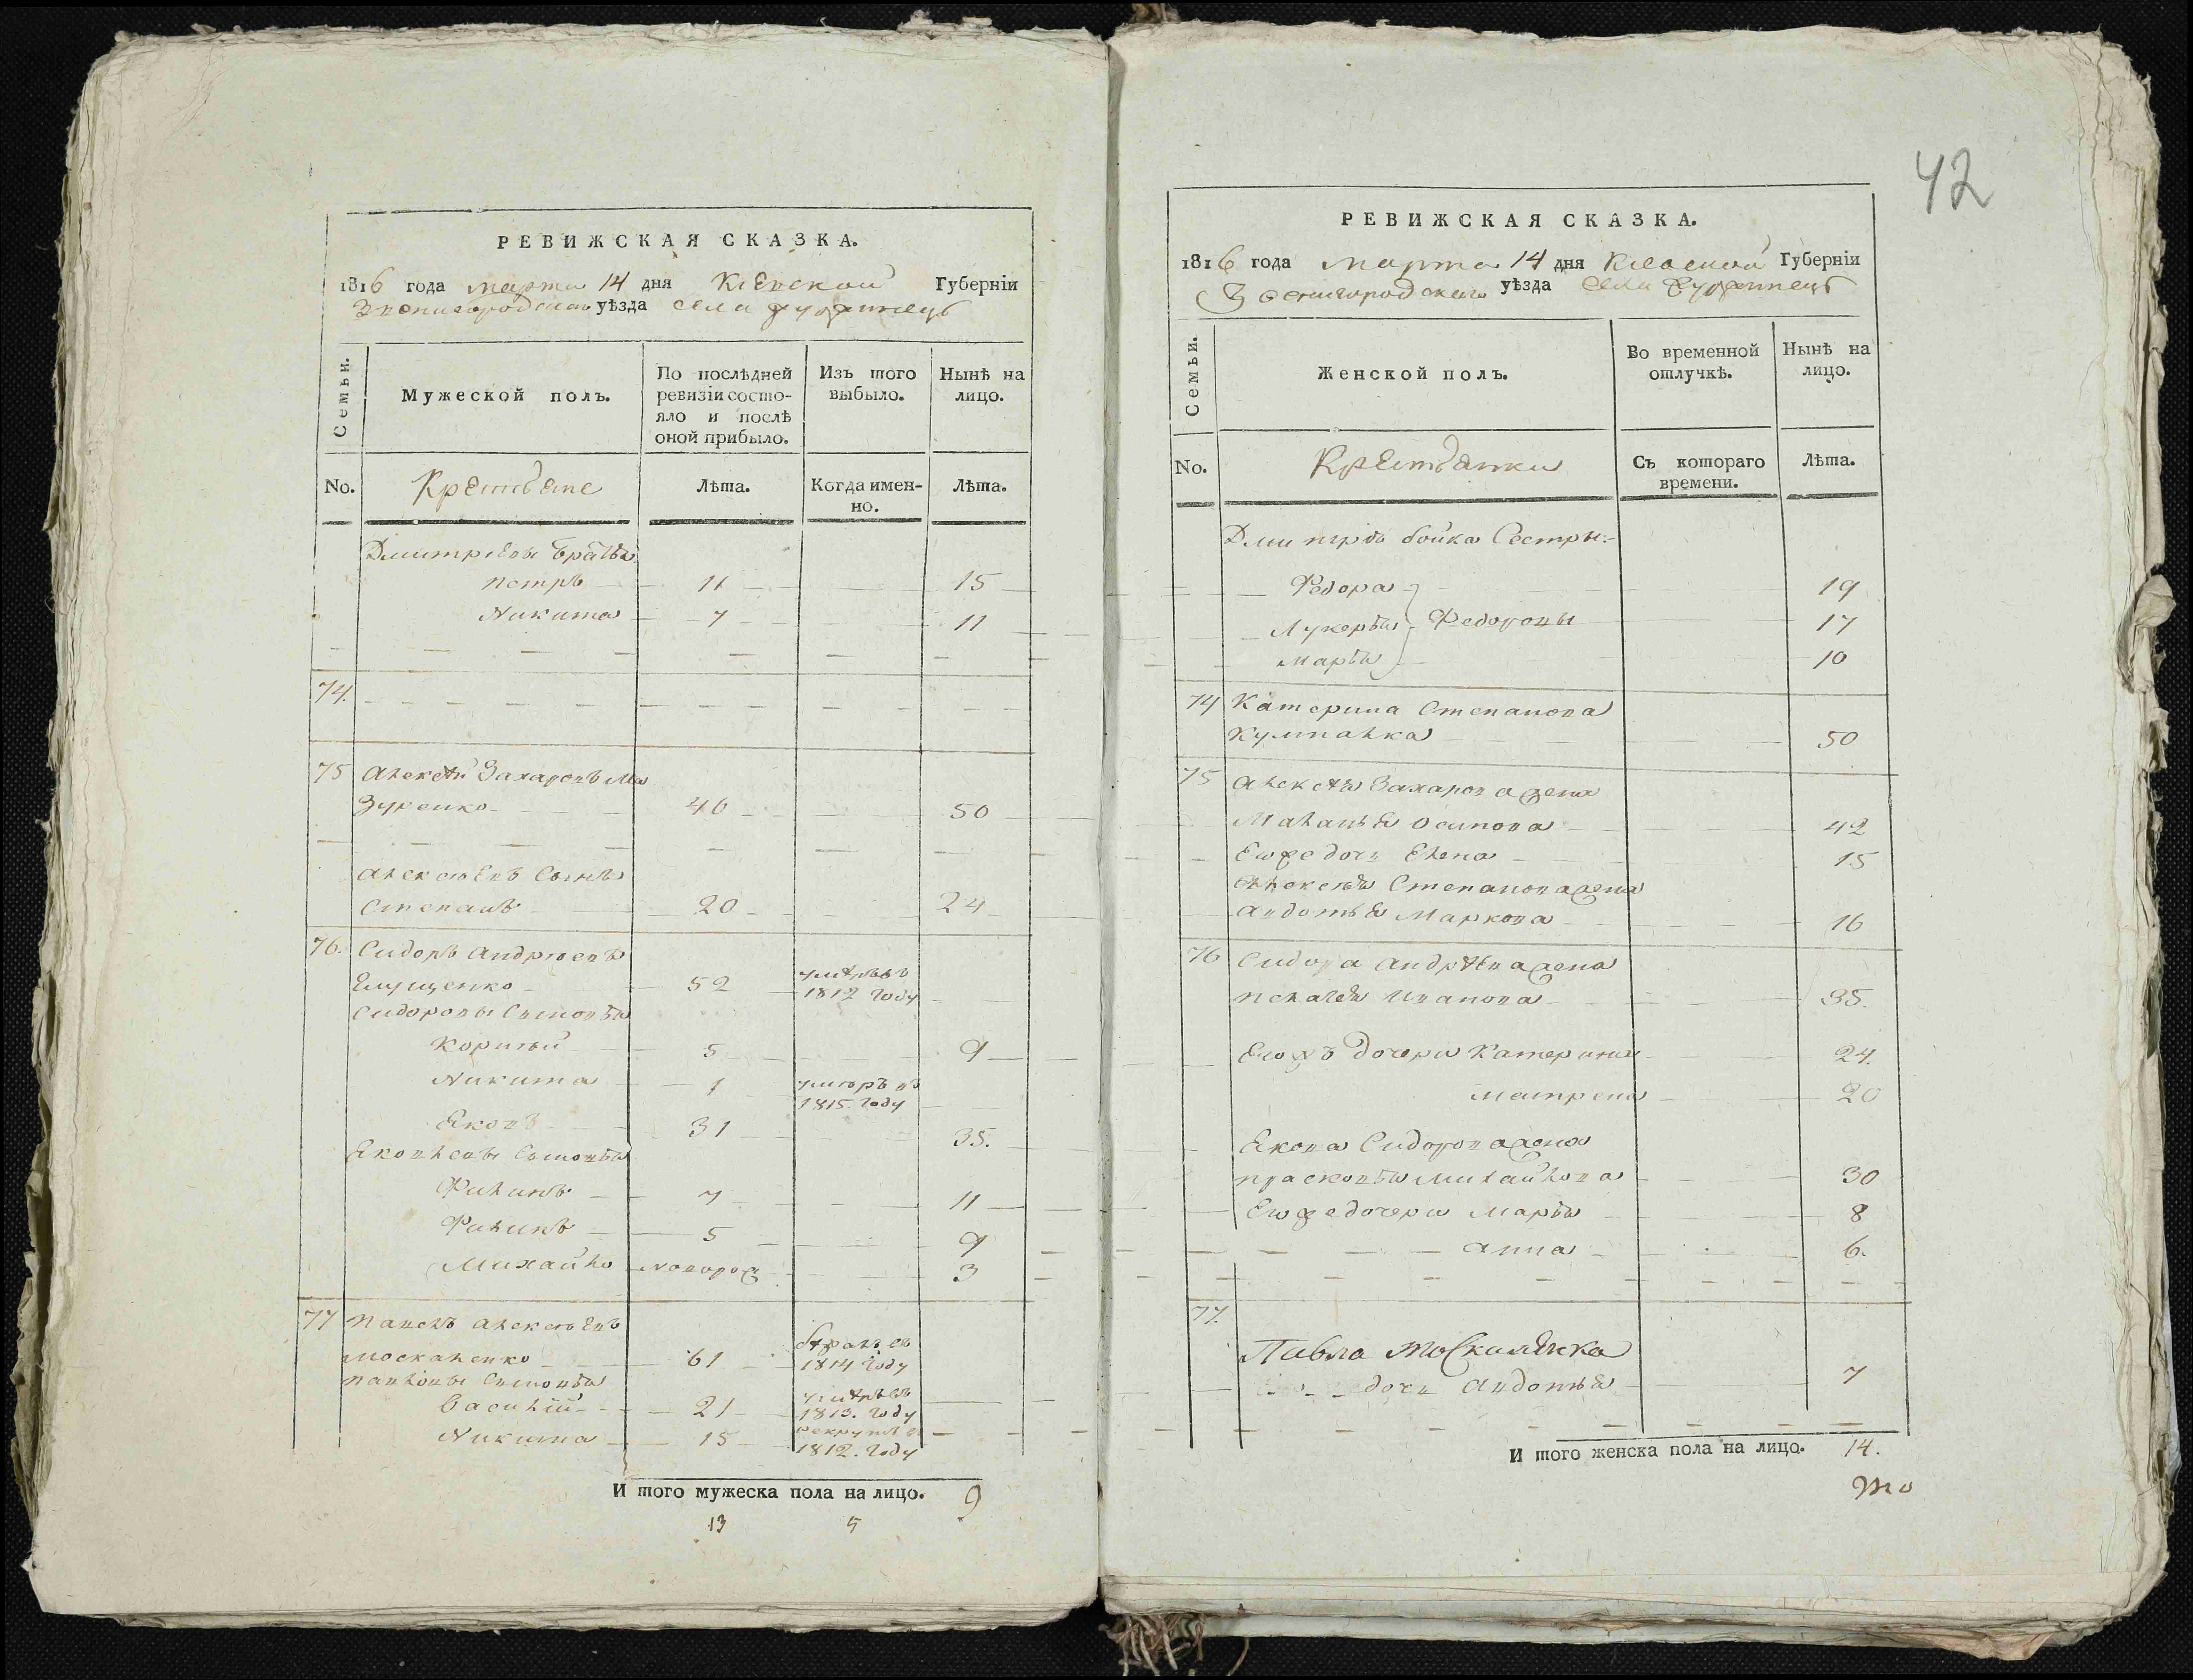 РЕВИЖСКАЯ СКАЗКА.
1816 года марта 14 дня Кіевской Губерніи
Звенигородскаго уѣзда села
Семьи.
Мужеской полъ.
По послѣдней ревизіи состояло и послѣ оной прибыло.
Изъ того выбыло.
Нынѣ на лицо.
No.
Крестьяне
Лѣта.
Когда именно.
Лѣта.
Дмитріевы братья
Петръ 11 15
Никита 7 11
74.
75 Алексѣй Захаровъ Ма
зуренко 46 50
Алексѣевъ Сынъ
Степанъ 20 24
76. Сидоръ Андрѣевъ
Емущенко 52 умѣръ въ 1812 году
Сидоровы Сыновья
Корнѣй 5 9
Никита 1 умѣръ въ 1815 году
Яковъ 31 35.
Яковлевы Сыновья
Филипъ 7 11
Филипъ 5 9
Михайло новорож 3
77 Павелъ Алексѣевъ
Москаленко 61 1814 году
Павловы Сыновья
Василій 21 умѣръ въ 1813. году
Никита 15 рекрутъ въ 1812. году
И того мужеска пола на лицо. 9
13 5
42
РЕВИЖСКАЯ СКАЗКА.
1816 года марта 14 дня Кіевской Губерніи
Звенигородскаго уѣзда села
Семьи.
Женской полъ.
Во временной отлучкѣ.
Нынѣ на лицо.
No.
Крестьянки
Съ котораго времени.
Лѣта.
Дмитрія бойка Сестры:
Федора 19
Лукерья Федоровы 17
Марья 10
74 Катерина Степанова
50
75 Алексѣя Захарова жена
Маланья Осипова 42
Егоже дочь Елена 15
Алексѣя Степанова жена
Авдотья Маркова 16
76 Сидора Андрѣева жена
Пелагея Иванова 35.
Ево жъ дочери Катерина 24.
Матрена 20
Якова Сидорова жена
Прасковья Михайлова 30
Егоже дочери Марья 8
Анна 6.
77.
Павла Москаленка
дочь Авдотья 7
И того женска пола на лицо. 14.